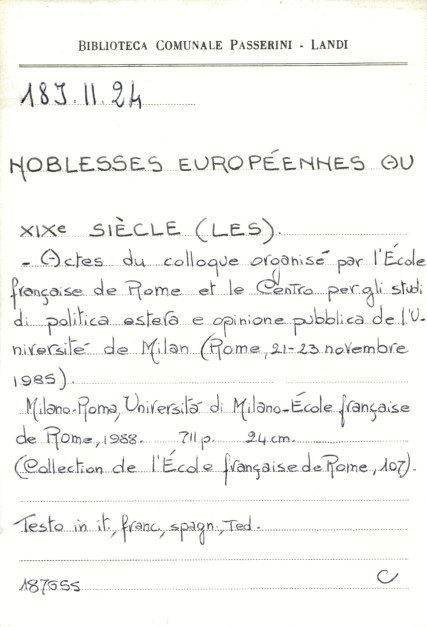 BIBLIOTECA COMUNALE PASSERINI - LANDI
18J.II.24
NOBLESSES EUROPÉENNES AU
XIXe SIÈCLE (LES).
- Actes du colloque organisé par l'École
française de Rome et le Centro per gli studi
di politica estera e opinione pubblica de l'U-
niversité de Milan (Rome, 21-23 novembre
1985).
Milano-Roma, Università di Milano-École française
de Rome, 1988. 711 p. 24 cm.
(Collection de l'École française de Rome, 107).
Testo in it., franc., spagn., Ted.
187655 C